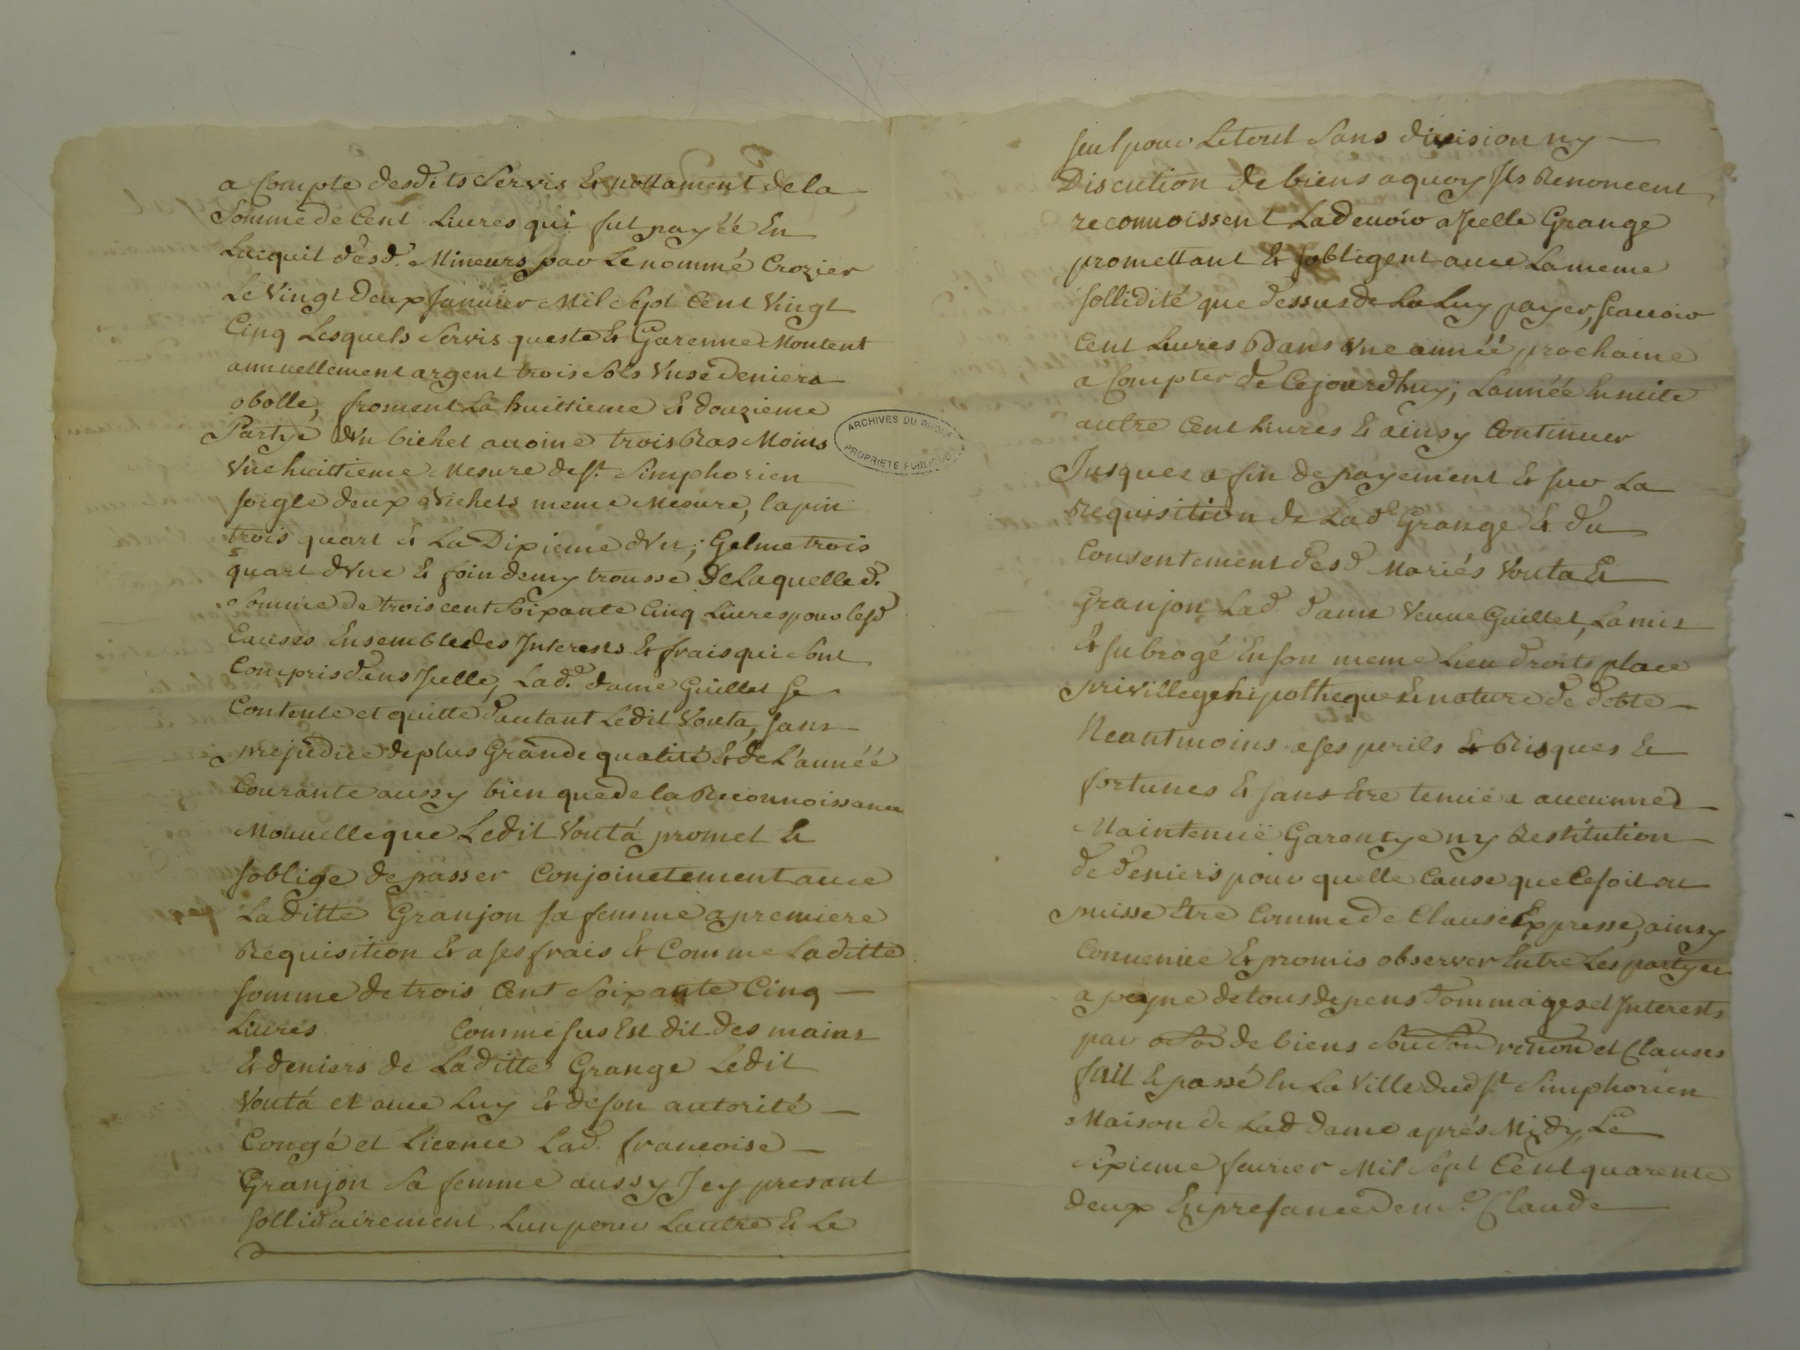 a Compte desdits Servis Et nottament de la
Somme de Cent Livres qui fut payéé En
Lacquit desd. Mineurs par Le nommé Crozier
Le Vingt deux Janvier Mil Sept Cent Vingt
Cinq Lesquels Servis queste Et Garenne Montent
annuellement argent trois Sols Unse deniers
obolle, froment La huittieme Et douzieme
Partye d'un bichet avoine trois Ras Moins
Une huittieme Mesure de St. Simphorien
soigle deux Bichets meme Mesure, lapin
trois quart Et La Dixieme d'un; Gelme trois
quart d'une Et foin demy trousse De Laquelle d.
Somme de trois cent Soixante Cinq Livres pour lesd
Causes Ensemble des Interests Et frais qui Sont
Compris dans Icelle, Lad. dame Guillet Se
Contente et quitte d'autant Ledit Vouta, sans
prejudice de plus Grande qualité Et de L'annéé
Courante aussy bien que de la Reconnoissance
Nouvelle que Ledit Voutá promet Et
soblige de passer Conjoinctement avec
Laditte Granjon sa femme a premiere
Requisition Et a ses frais Et Comme Laditte
somme de trois Cent Soixante Cinq
Livres Comme sus Est dit des mains
Et deniers de Laditte Grange Ledit
Voutá et avec Luy Et de son autorité
Congé et Licence Lad. francoise
Granjon Sa femme aussy Icy presant
sollidairement Lun pour Lautre Et Le
seul pour Le tout Sans division ny
Discution de biens a quoy Ils Renoncent
reconnoissent La devoir a Icelle Grange
promettant Et sobligent avec La meme
sollidité que dessus de La Luy payer, scavoir
Cent Livres Dans Une annéé prochaine
a Compter de Cejourdhuy; Lannéé Ensuite
autre Cent Livres Et ainsy Continuer
Jusques a fin de payement Et sur La
Requisition de Lade Grange Et du
Consentement desd Mariés Vouta Et
Granjon Lad. dame Veuve Guillet, La mis
Et subrogé En son meme Lieu droits place
privillege hipotheque Et nature de debte
Neantmoins a ses perils Et Risques Et
fortunes Et sans Etre tenüe a aucunnes
Maintenüe Garentye ny Restitution
de deniers pour quelle Cause que Ce soit ou
puisse Etre Comme de Clause Expresse, ainsy
Convenüe Et promis observer Entre Les partyes
a peyne de tous depens dommages et Interests
par de biens renon et Clauses
fait Et passé En La Ville dud St. Simphorien
Maison de Lad dame aprés Midy, Le
Sixieme fevrier Mil Sept Cent quarente
deux En presance de me. Claude
ARCHIVES DU RHONE
PROPRIETE PUBLIQUE